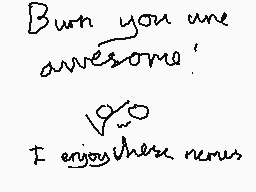 Burn you are
awesome!
I enjoy these memes